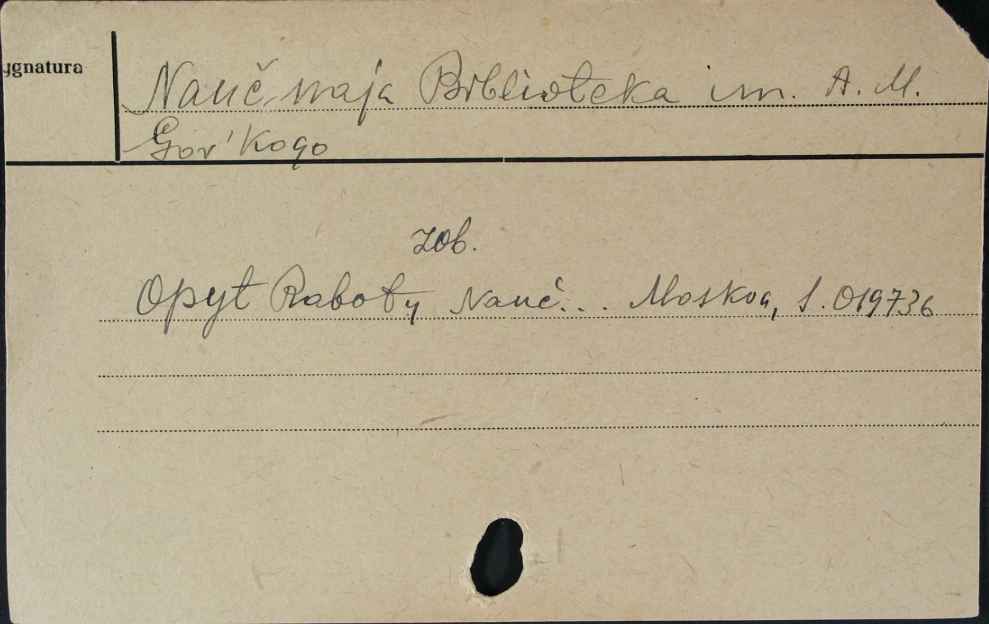 ygnatura
Naučnaja Biblioteka im. A. M.
Gor'kogo
zob.
Opyt Raboty Nauč... Moskva, S. 019736